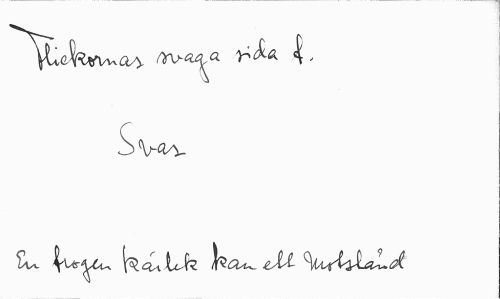 Flickornas svaga sida f.
Svar
En trogen kärlek kan ett Motstånd